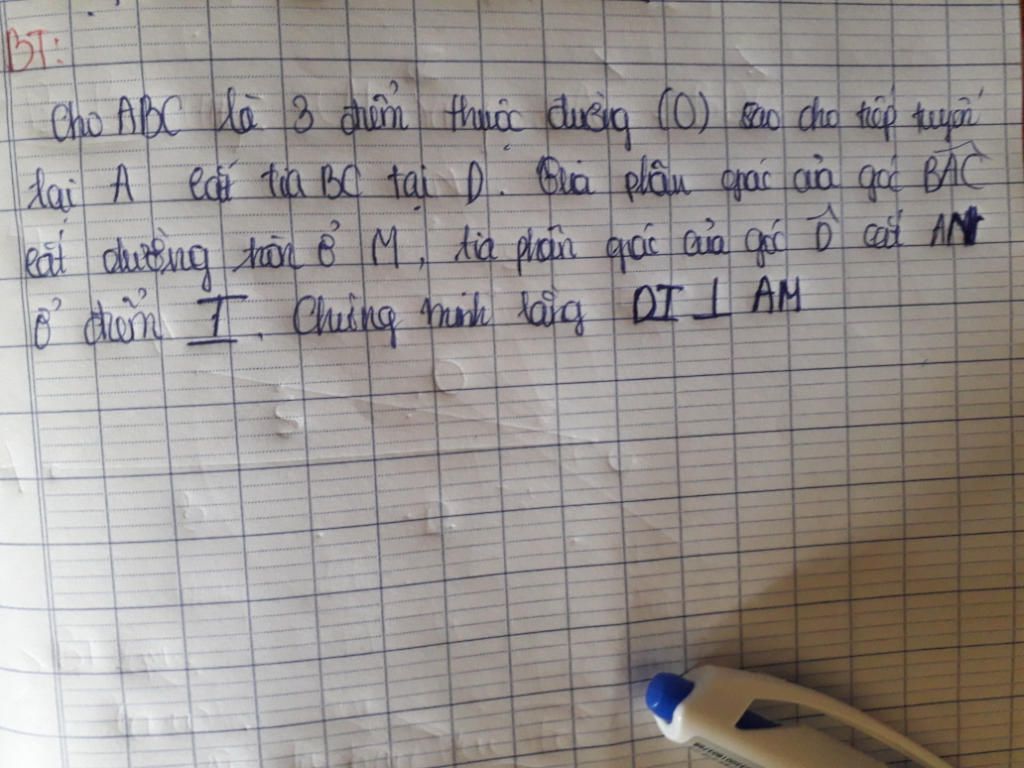 BT:
Cho ABC là 3 điểm thuộc đường (O) sao cho tiếp tuyến
tại A cắt tia BC tại D. phân giác của góc BAC
cắt đường tròn ở M, tia phân giác của góc D̂ cắt AM
ở điểm I. Chứng minh rằng DI ⊥ AM